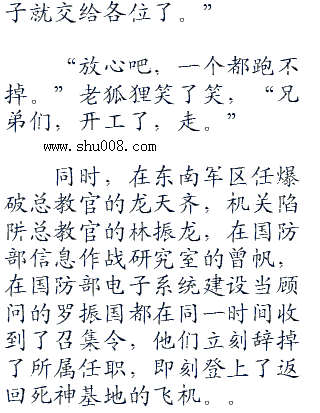 子就交给各位了。”
“放心吧，一个都跑不
掉。”老狐狸笑了笑，“兄
弟们，开工了，走。”
www.shu008.com
同时，在东南军区任爆
破总教官的龙天齐，机关陷
阱总教官的林振龙，在国防
部信息作战研究室的曾帆，
在国防部电子系统建设当顾
问的罗振国都在同一时间收
到了召集令，他们立刻辞掉
了所属任职，即刻登上了返
回死神基地的飞机。。